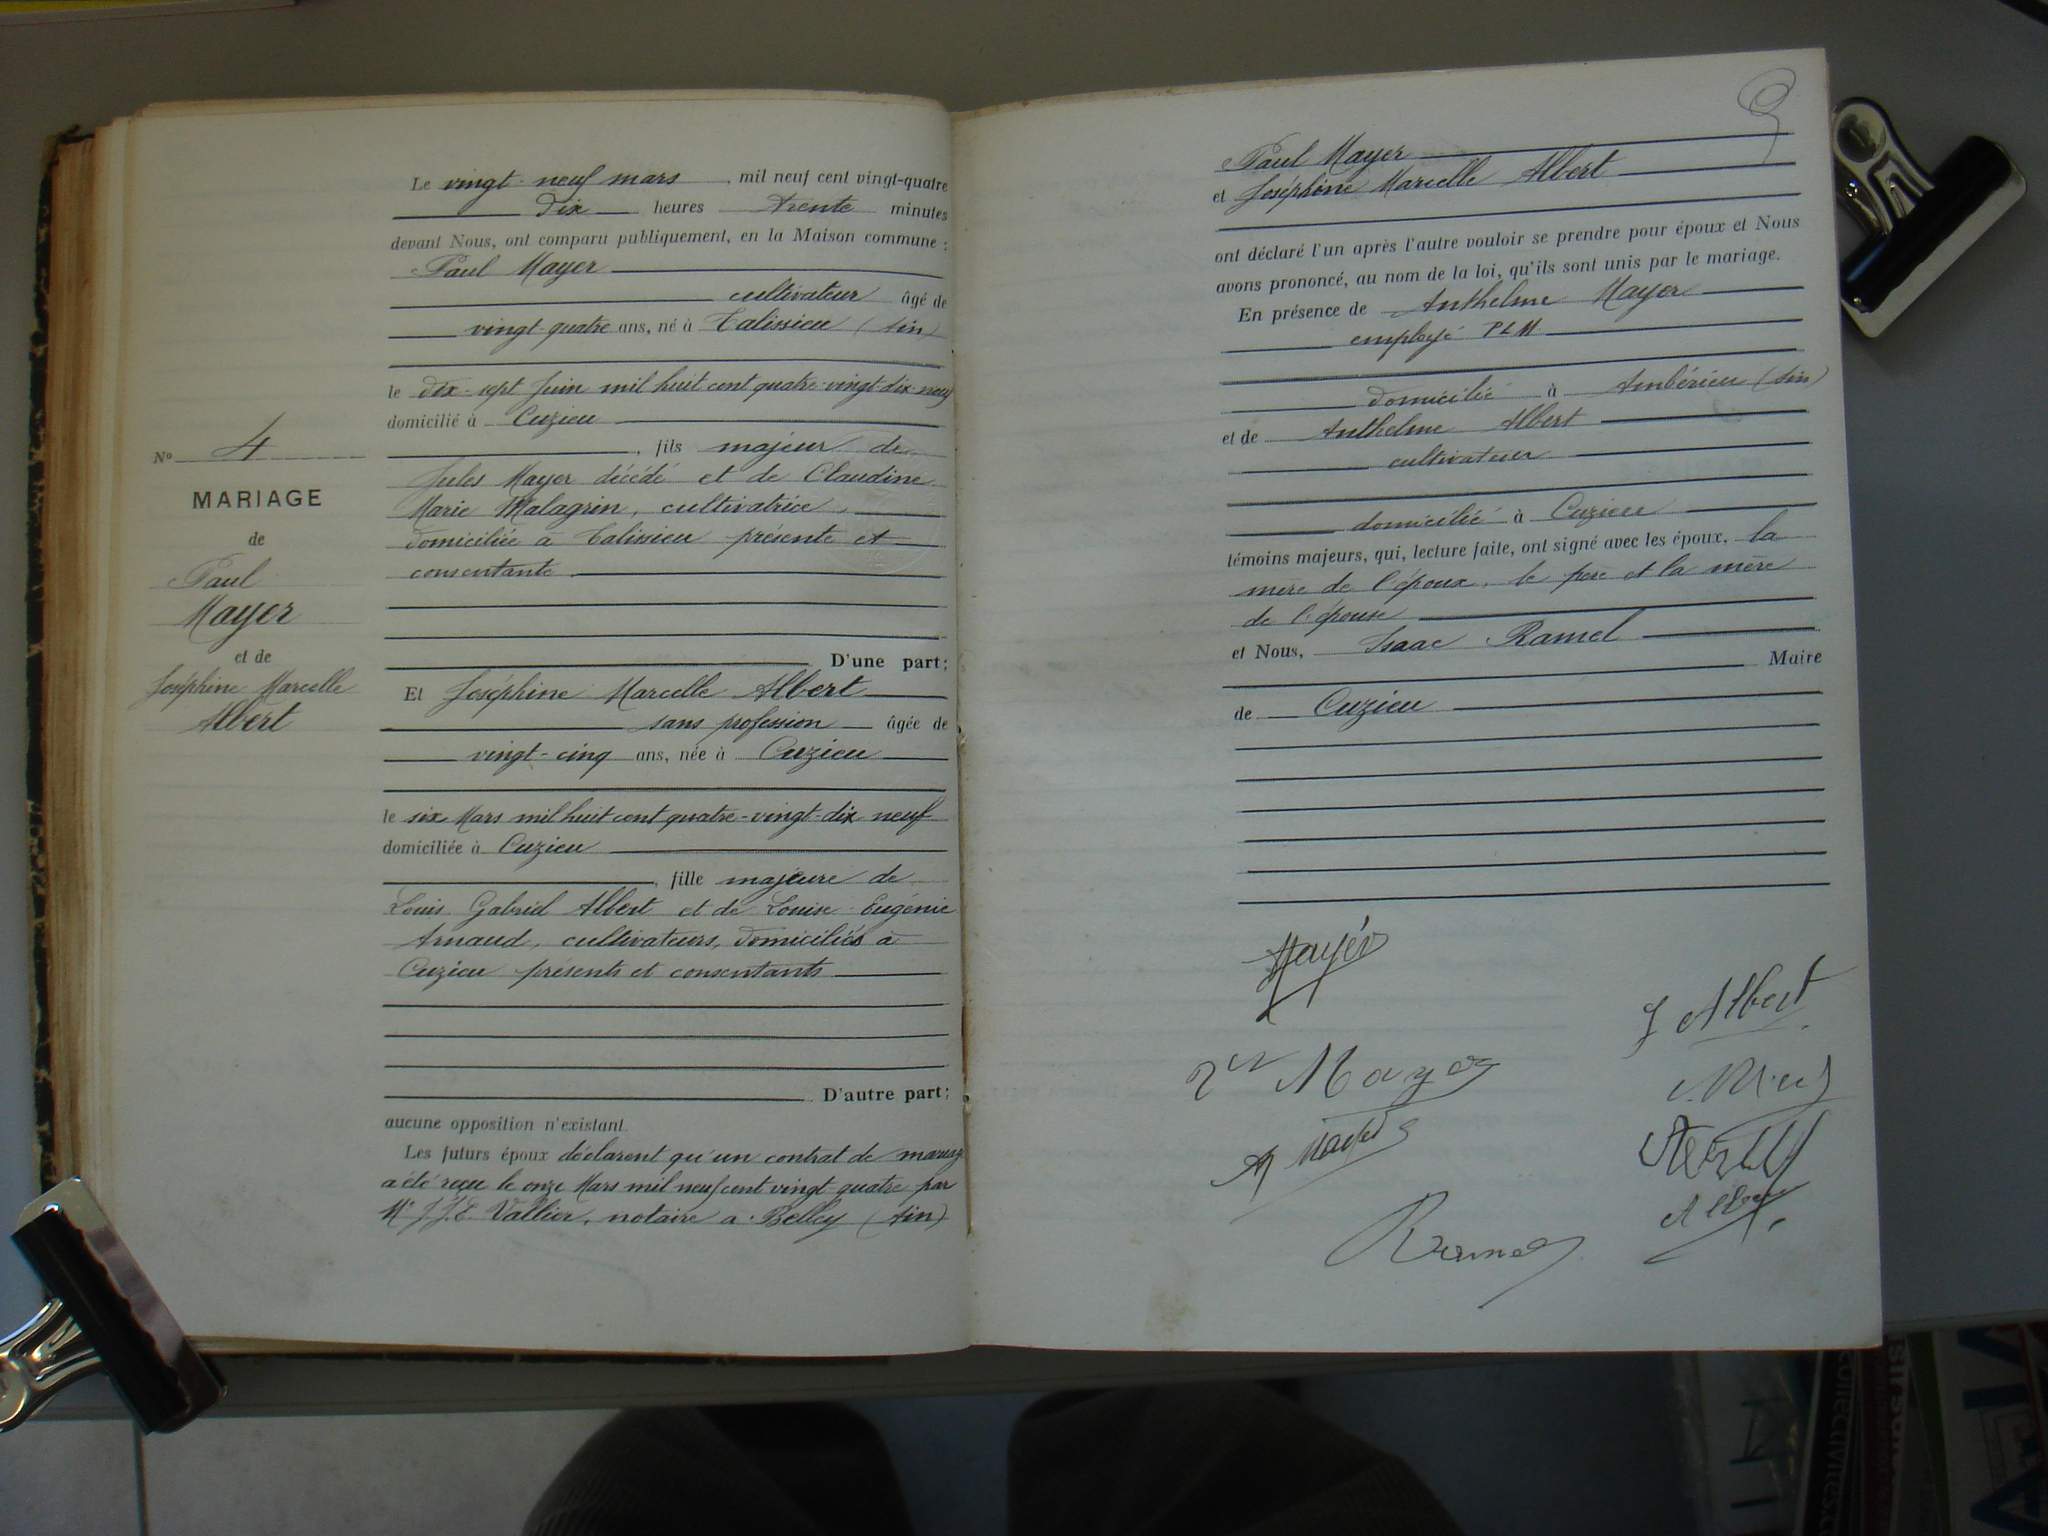 N° 4
MARIAGE
de
Paul
Mayer
et de
Joséphine Marcelle
Albert
Le vingt-neuf mars, mil neuf cent vingt-quatre
dix heures trente minutes
devant Nous, ont comparu publiquement, en la Maison commune :
Paul Mayer
cultivateur âgé de
vingt-quatre ans, né à Talissieu (Ain)
le dix-sept Juin mil huit cent quatre-vingt-dix-neuf
domicilié à Cuzieu
, fils majeur de
Jules Mayer décédé et de Claudine
Marie Malagrin, cultivatrice,
domiciliée à Talissieu présente et
consentante
D'une part;
Et Joséphine Marcelle Albert
sans profession âgée de
vingt-cinq ans, née à Cuzieu
le six Mars mil huit cent quatre-vingt-dix neuf
domiciliée à Cuzieu
, fille majeure de
Louis Gabriel Albert et de Louise Eugénie
Arnaud, cultivateurs, domiciliés à
Cuzieu présents et consentants
D'autre part;
aucune opposition n'existant.
Les futurs époux déclarent qu'un contrat de mariag
a été reçu le onze Mars mil neuf cent vingt-quatre par
Me J.J.E. Vallier, notaire à Belley (Ain)
Paul Mayer
et Joséphine Marcelle Albert
ont déclaré l'un après l'autre vouloir se prendre pour époux et Nous
avons prononcé, au nom de la loi, qu'ils sont unis par le mariage.
En présence de Anthelme Mayer
employé PLM
domicilié à Ambérieu (Ain)
et de Anthelme Albert
cultivateur
domicilié à Cuzieu
témoins majeurs, qui, lecture faite, ont signé avec les époux, la
mère de l'époux, le père et la mère
de l'épouse
et Nous, Isaac Ramel
Maire
de Cuzieu
Mayer
J Albert
Mayer
Albert
Ramel